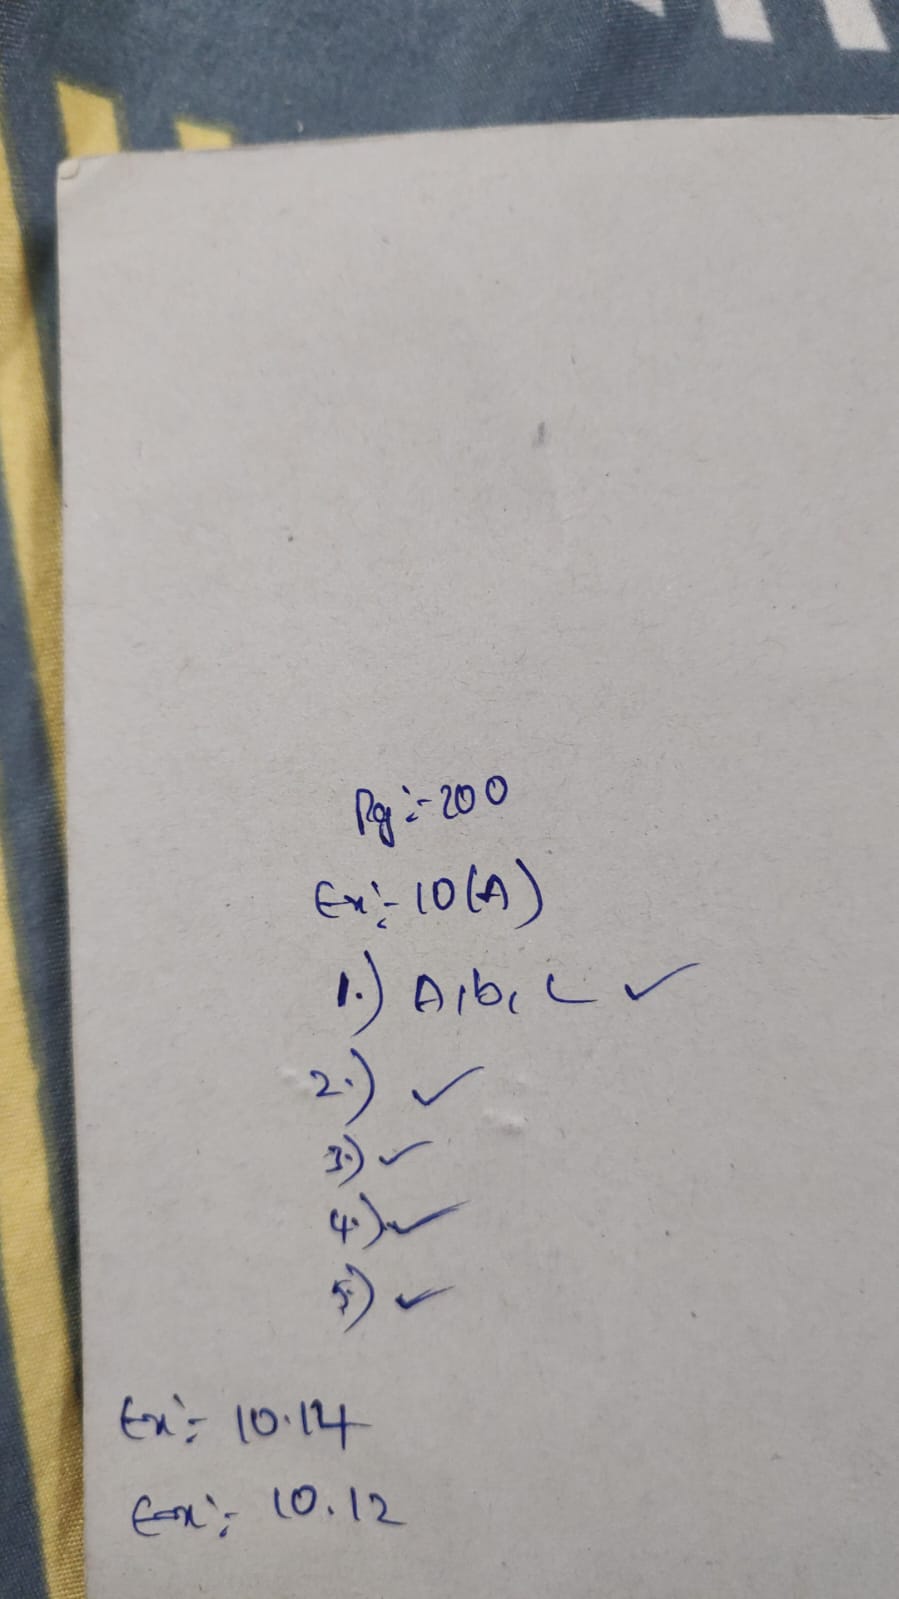 Pg:-200
Ex:-10(A)
1.) A,b, C ✓
2.) ✓
3.) ✓
4.) ✓
5.) ✓
Ex:- 10.14
Ex:- 10.12